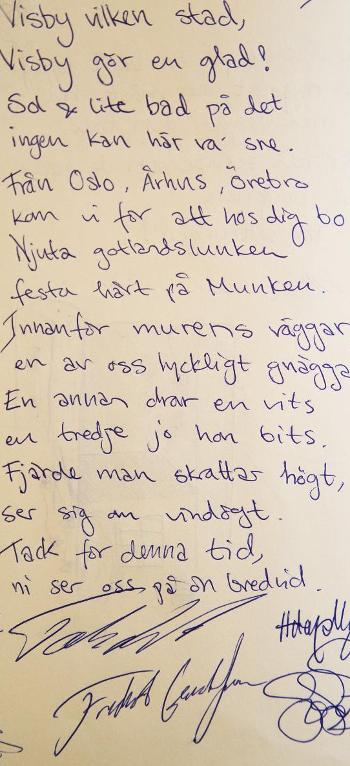 Visby vilken stad,
Visby gör en glad!
Sol & lite bad på det
ingen kan här va' sne.
Från Oslo, Århus, Örebro
kom vi för att hos dig bo
Njuta gotlandslunken
festa hårt på Munken.
Innanför murens väggar
en av oss lyckligt gnägga
En annan drar en vits
en tredje jo han bits.
Fjärde man skattar högt,
ser sig om vindögt.
Tack för denna tid,
ni ser oss på ön bredvid.